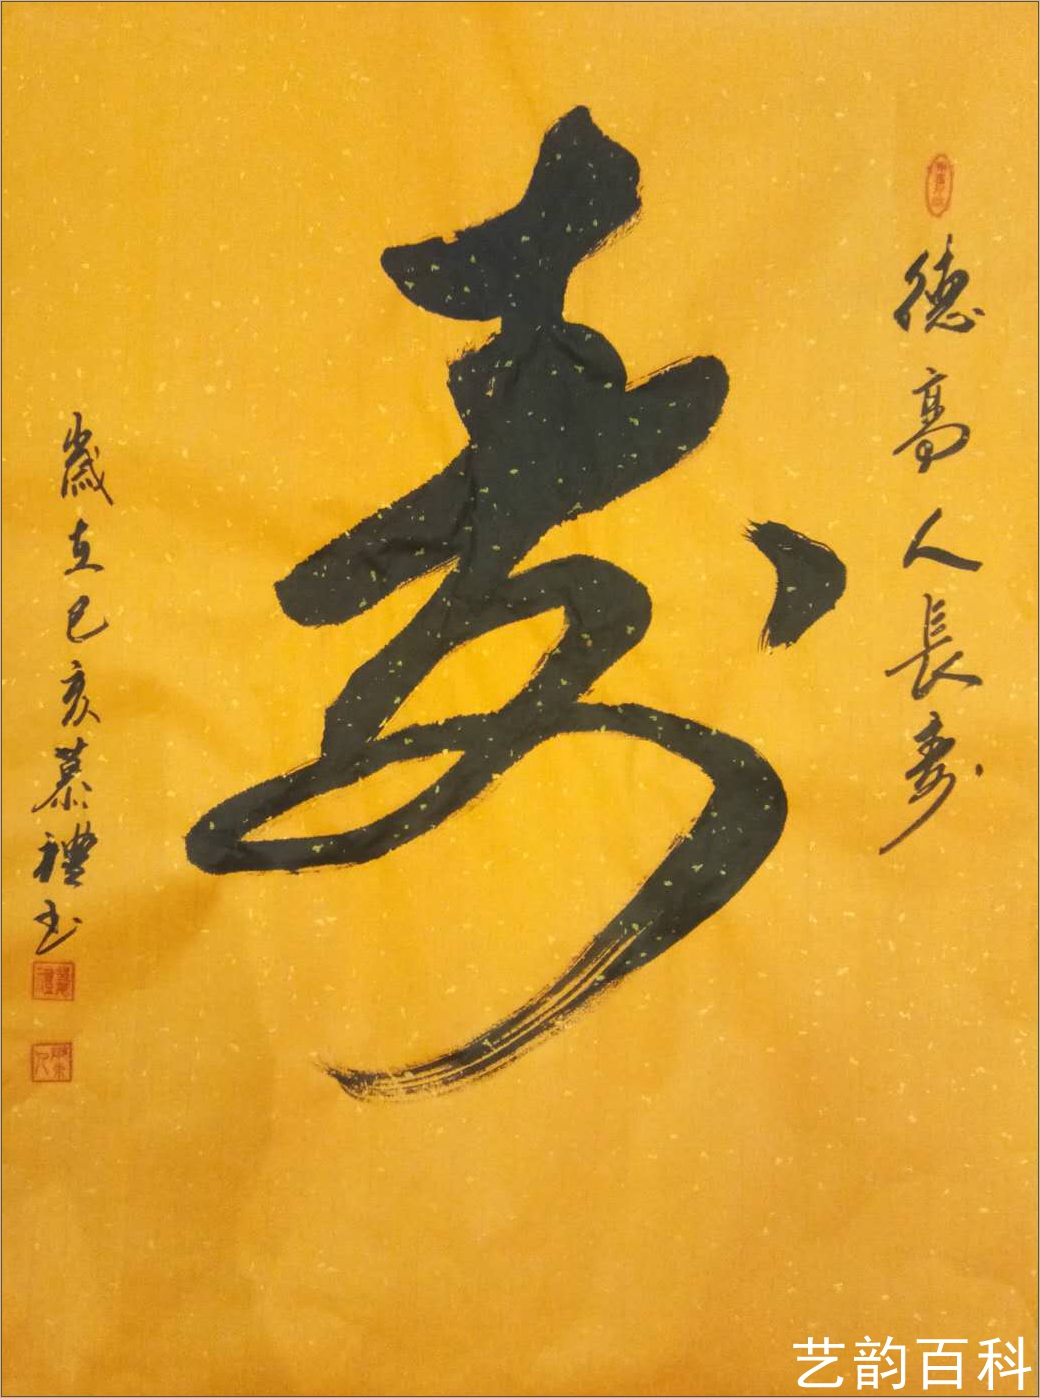 德高人長壽
壽
歲在己亥慕禮书
艺韵百科